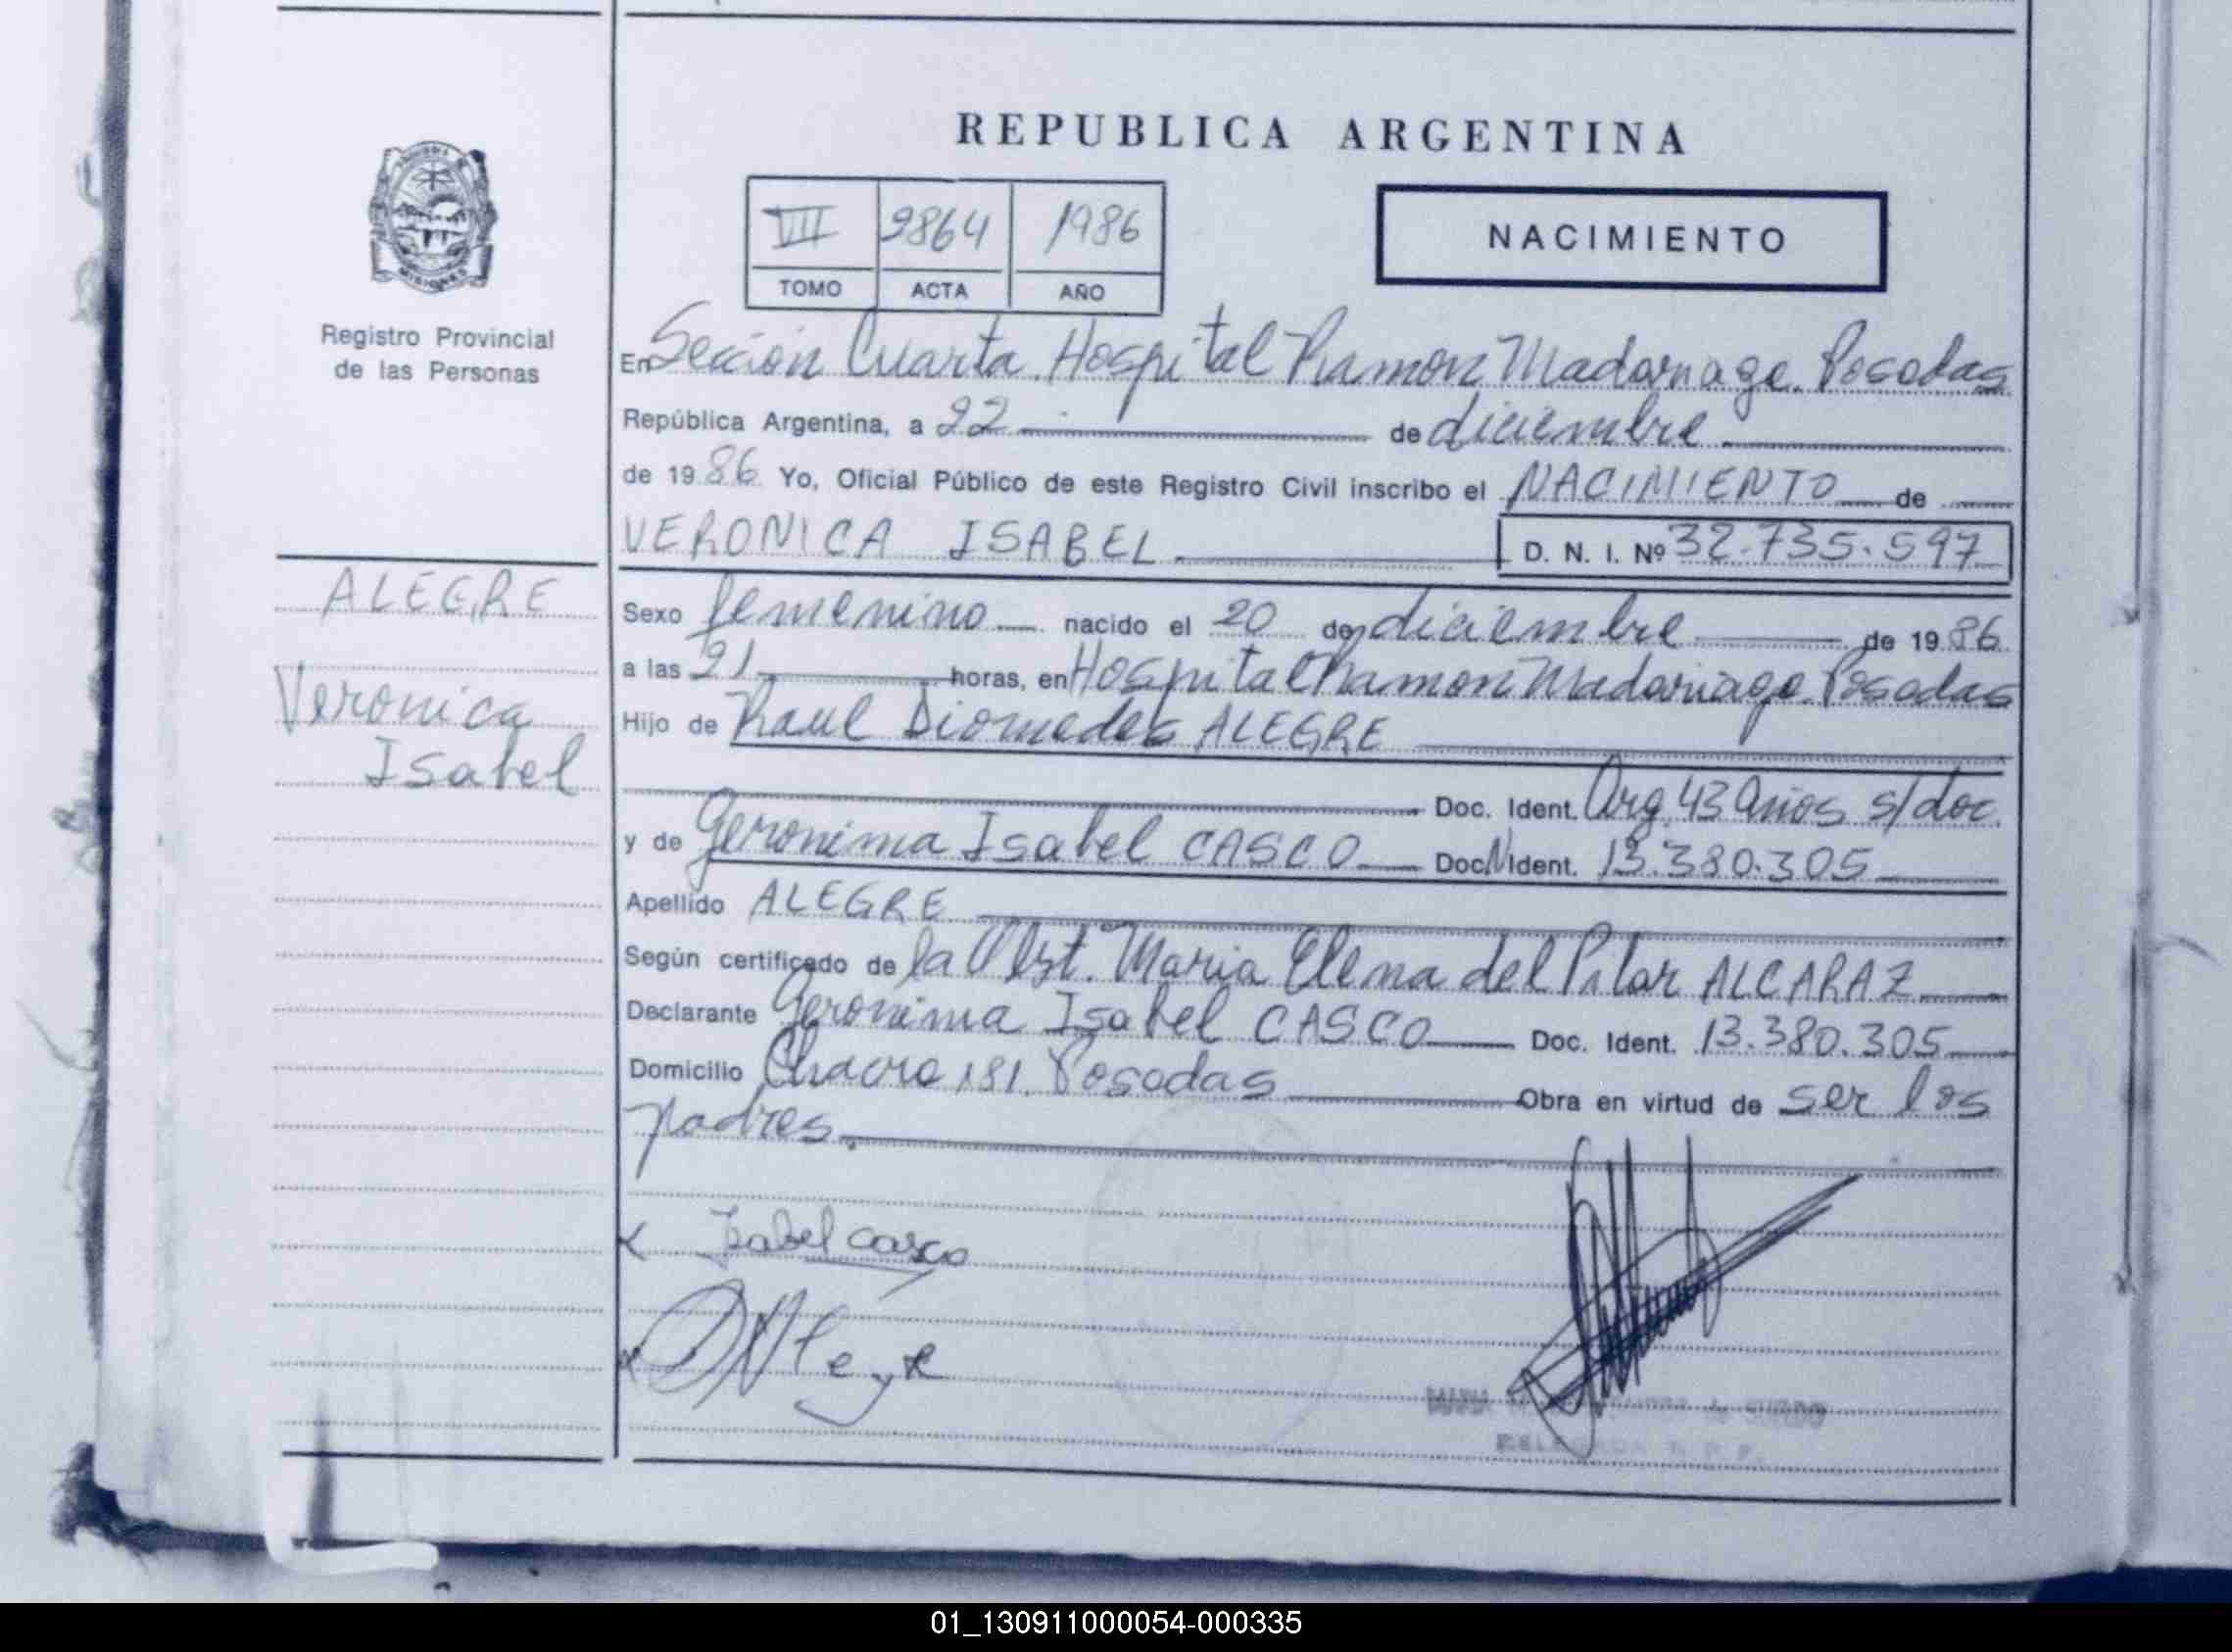 REPUBLICA ARGENTINA
VII 9864 1986
TOMO ACTA AÑO
NACIMIENTO
Registro Provincial
de las Personas
ALEGRE
Veronica
Isabel
En Sección Cuarta. Hospital Ramon Madariaga. Posadas
República Argentina, a 22 de diciembre
de 1986 Yo, Oficial Público de este Registro Civil inscribo el NACIMIENTO de
VERONICA ISABEL D. N. I. Nº 32.735.597
Sexo femenino nacido el 20 de diciembre de 1986
a las 21 horas, en Hospital Ramon Madariaga. Posadas
Hijo de Raul Diomedes ALEGRE
Doc. Ident. Arg. 43 años s/doc.
y de Geronima Isabel CASCO Doc. N Ident. 13.380.305
Apellido ALEGRE
Según certificado de la Obst. Maria Elena del Pilar ALCARAZ
Declarante Geronima Isabel CASCO Doc. Ident. 13.380.305
Domicilio Chacra 181. Posadas Obra en virtud de ser los
padres.
Isabel casco
DELEGADA R. P. P.
01_130911000054-000335